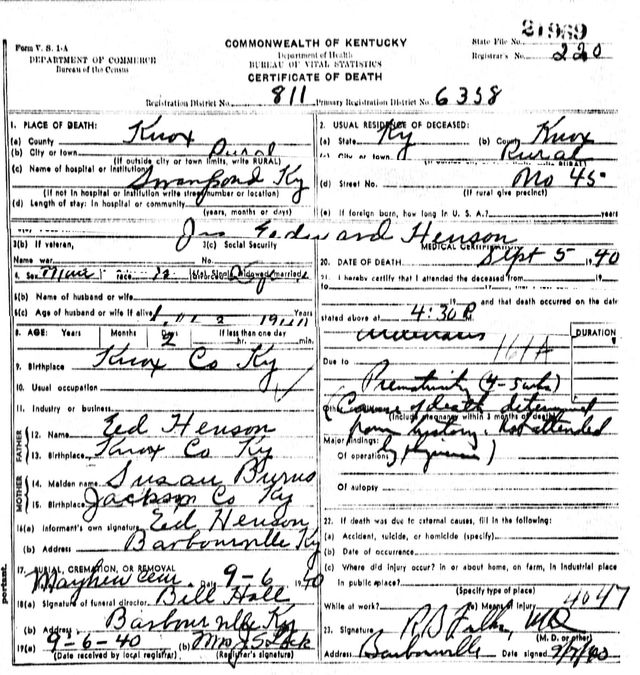 21969
Form V. S. 1-A
DEPARTMENT OF COMMERCE
Bureau of the Census
COMMONWEALTH OF KENTUCKY
Department of Health
BUREAU OF VITAL STATISTICS
CERTIFICATE OF DEATH
State File No.
Registrar's No. 220
Registration District No. 811 Primary Registration District No. 6358
1. PLACE OF DEATH:
(a) County Knox
(b) City or town Rural
(If outside city or town limits, write RURAL)
(c) Name of hospital or institution
Swanpond Ky
(If not in hospital or institution write street number or location)
(d) Length of stay: In hospital or community
(years, months or days)
2. USUAL RESIDENCE OF DECEASED:
(a) State Ky (b) County Knox
(c) City or town Rural
(d) Street No. No 45
(If rural give precinct)
(e) If foreign born, how long in U. S. A.? years
Edward Henson
3(b) If veteran,
Name war
3(c) Social Security
No.
4. Sex Male
6(b) Name of husband or wife
6(c) Age of husband or wife if alive Years
8. AGE: Years Months Days 2 If less than one day
hr. min.
9. Birthplace Knox Co Ky
10. Usual occupation
11. Industry or business
FATHER
12. Name Ed Henson
13. Birthplace Knox Co Ky
MOTHER
14. Maiden name Susan Burns
15. Birthplace Jackson Co Ky
16(a) Informant's own signature Ed Henson
(b) Address Barbourville Ky
17. BURIAL, CREMATION, OR REMOVAL
Mayhew Cem Date 9-6 1940
18(a) Signature of funeral director Bill Hall
(b) Address Barbourville Ky
19(a) 9-6-40 (b) Mrs J S Lock
(Date received by local registrar) (Registrar's signature)
MEDICAL CERTIFICATION
20. DATE OF DEATH Sept 5 1940
21. I hereby certify that I attended the deceased from 19
19 and that death occurred on the date
stated above at 4:30 P
DURATION
161A
Due to
Prematurity (4-5 wks)
(Cause of death determined
(Include pregnancy within 3 months of death)
from history. Not attended
Major findings:
Of operations by Physician)
Of autopsy
22. If death was due to external causes, fill in the following:
(a) Accident, suicide, or homicide (specify)
(b) Date of occurrence
(c) Where did injury occur? in or about home, on farm, in industrial place
in public place?
(Specify type of place)
While at work? (e) Means of injury 4047
23. Signature MD
(M. D. or other)
Address Barbourville Date signed 9/7/40
portant.